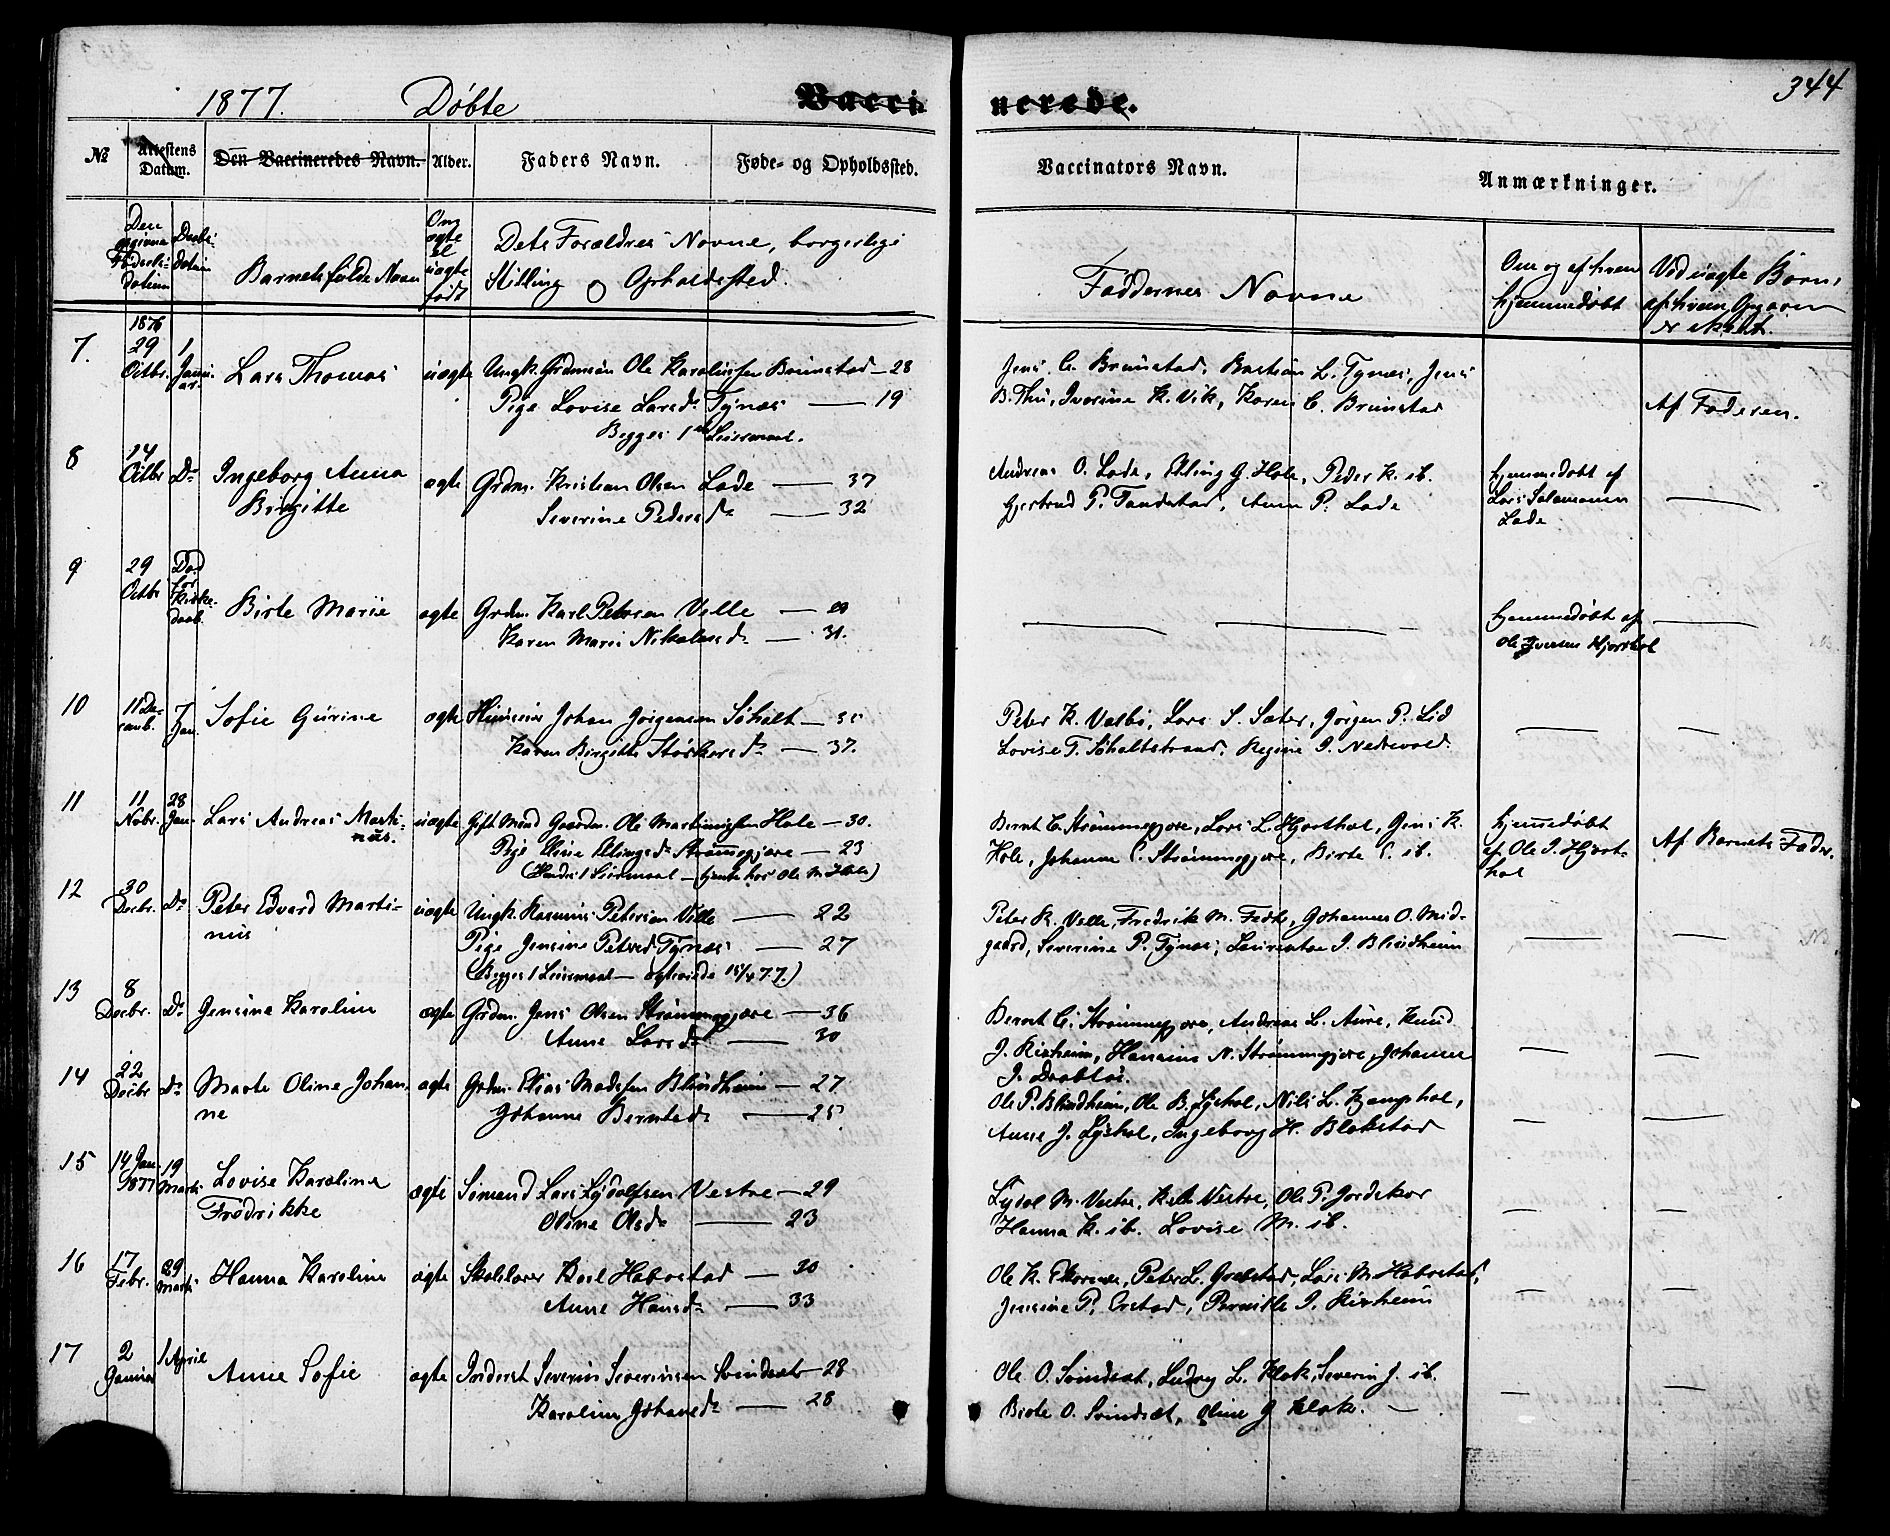 1877. Døbte Vacci nerede. 344
No Attestens Datum. Den Vaccineredes Navn. Alder. Faders Navn. Føde- og Opholdssted. Vaccinators Navn. Anmærkninger.
Den opgivne Fødsels datum
Daabs datum
Barnets fulde Navn
Om ægte el uægte født
Dets Forældres Navne, borgerlige
Stilling o Opholdssted.
Faddernes Navne
Om og af hvem
hjemmedøbt
Ved uægte Børn,
af hvem Opgaven
er skeet.
7. 1876 29 Octbr. 1 Januar. Lars Thomas uægte Ungk. Grdmsøn Ole Karolusen Brunstad — 28
Pige Lovise Larsdr Tynæs — 19
Begges 1ste Leiermaal.
Jens C. Brunstad, Bastian L. Tynes, Jens
B. Thu, Iversine K. Vik, Karen C. Brunstad
Af Faderen.
8 14 Octbr Do Ingeborg Anna
Birgitte
ægte Grdm. Kristian Olsen Lade — 37
Severine Pedersdr — 32
Andreas O. Lade, Elling G. Hole, Peder K. ib.
Gjertrud P. Tandstad, Anne P. Lade
hjemmedøbt af
Lars Salamonsen
Lade
9 29 Octbr Død før Kirkedaab. Birte Marie ægte Grdm. Karl Petersen Velle —
Karen Marie Nikolaisdr — 31.
hjemmedøbt af
Ole Iversen Hjorthol
10 11 Decemb. 7 Jan. Sofie Gurine ægte Huusm Johan Jørgensen Søholt — 35
Karen Birgitte Størkersdr — 37.
Peter K. Valbø, Lars S. Sæter, Jørgen P. Lid
Lovise T. Søholtstrand, Regine I. Nedrevold.
11 11 Nobr. 28 Jan. Lars Andreas Marti-
nus.
uægte Gift Mand Gaardm. Ole Martinussen Hole — 30.
Pige Eline Ellingsdr Strømmegjære — 23
(Hendes 1 Leiermaal — tjente hos Ole M. Hole)
Bernt C. Strømmegjære, Lars L. Hjorthol, Jens K.
Hole, Johanne E. Strømmegjære, Birte E. ib.
hjemmedøbt
af Ole I. Hjort-
hol
Af Barnets Fader.
12 30 Decbr. Do Peter Edvard Marti-
nus
uægte Ungk. Rasmus Petersen Velle — 22
Pige Jensine Petersd. Tynæs — 27
(Begges 1 Leiermaal — ægteviede 15/4 77.)
Peter K. Velle, Fredrik M. Fedt, Johannes O. Mid-
gaard, Severine P. Tynæs, Laurentse I. Blindheim
13 8 Decbr. Do Jensine Karoline ægte Grdm. Jens Olsen Strømmegjære — 36
Anne Larsdr — 30
Bernt C. Strømmegjære, Andreas L. Aure, Knud
J. Rixheim, Hansine N. Strømmegjære, Johanne
I. Drabløs.
14 22 Decbr Do Marte Oline Johan
ne
ægte Grdm. Elias Madssen Blindheim — 27
Johanne Berntsdr — 25
Ole P. Blindheim, Ole B. Lyshol, Nils L. Kjempehol,
Anne J. Lyshol, Ingeborg H. Blakstad
15 14 Jan. 1877 19 Marts Lovise Karoline
Fredrikke
ægte Sømand Lars Lydolfsen Vestre — 29
Oline Olsdr — 23
Lydol M. Vestre, Vestre, Ole P. Jordskar
Hanna K. ib. Lovise M. ib.
16 17 Febr. 29 Marts Hanna Karoline ægte Skolelærer Karl Habostad — 30
Anne Hansdr — 33
Ole K. Ekornes, Peter L. Grebstad, Lars M. Habostad,
Jensine P. Erstad, Pernille I. Rixheim
17 2 Januar 1 April Anne Sofie ægte Inderst Severin Severinsen Svindset — 28
Karoline Johansdr — 28
Ole O. Svindset, Ludvig L. Klok, Severin J. ib.
Birte O. Svindset, Oline J Klok. —